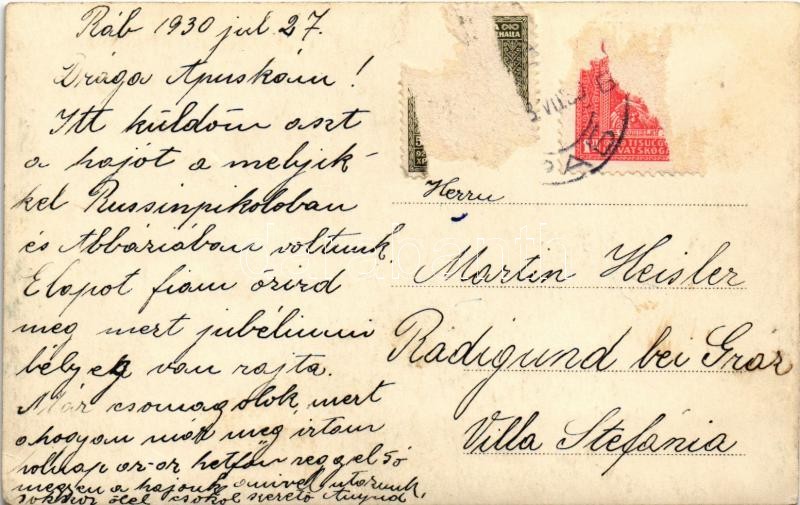 Ráb 1930 jul 27.
Drága Apuskám!
Itt küldöm aszt
a hajót a melyik-
kel Russinpikoloban
és Abbáziában voltunk
E lapot fiam őrizd
meg mert jubéliumi
bélyeg van rajta.
Már csomagolok, mert
ahogyan már meg irtam
holnap az-az hetfőn reggel 5ó
megyen a hajónk amivel utazunk
sokszor ölel csókol szerető Anyud.
Herrn
Martin Heisler
Radigund bei Graz
Villa Stefánia
OTISUĆG
VATSKOGA
VII.30
darabanth